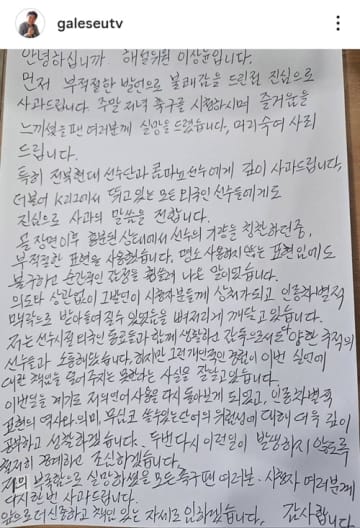 galeseutv
안녕하십니까. 해설위원 이상윤입니다.
먼저 부적절한 발언으로 불쾌감을 드린점 진심으로
사과드립니다. 주말 저녁 축구를 시청하시며 즐거움을
느끼셨을 팬 여러분께 실망을 드렸습니다, 머리숙여 사죄
드립니다.
특히 전북현대 선수단과 콤파뇨선수에게 깊이 사과드립니다,
더불어 K리그에서 뛰고있는 모든 외국인 선수들에게도
진심으로 사과의 말씀을 전합니다.
골 장면이후 흥분된 상태에서 선수의 기량을 칭찬하려던중,
부적절한 표현을 사용했습니다. 평소 사용하지 않는 표현임에도
불구하고 순간적인 감정을 나온 말이었습니다.
의도와 상관없이 그발언이 시청자분들께 상처가되고 인종차별적
맥락으로 받아들여질수 있었음을 뼈저리게 깨닫고있습니다.
저는 선수시절 외국인 동료들과 함께 생활하고 감독으로서도 다양한 국적의
선수들과 소통해왔습니다. 하지만 그런개인적인 경험이 이번 실언에
대한 책임을 덜어주지는 못한다는 사실을 잘알고있습니다.
이번일을 계기로 저의언어사용을 다시 돌아보게 되었고, 인종차별적
표현의 역사와 의미, 무심코 쓸수있는단어의 위험성에 대해 더욱 깊이
공부하고 성찰하겠습니다. 두번다시 이런일이 발생하지 않도록
철저히 경계하고 조심하겠습니다.
저의 부족함으로 실망하셨을 모든축구팬 여러분. 시청자 여러분께
다시한번 사과드립니다.
앞으로 더신중하고 책임 있는 자세로 임하겠습니다. 감사합니다